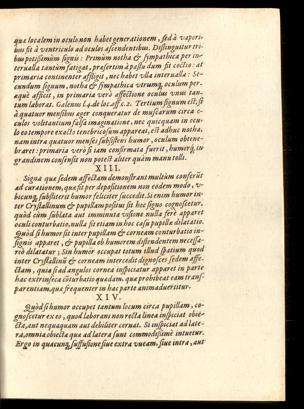 quæ localem in oculo non habet generationem, sed à vapori-
bus sit à ventriculo ad oculos ascendentibus. Distinguitur tri-
bus potissimùm signis: Primùm notha & sympathica per in-
terualla tantùm fatigat, præsertim à pastu dum sit coctio: at
primaria continenter affligit, nec habet vlla interualla: Se-
cundum signum, notha & sympathica vtrumq; oculum per-
æquè afficit, in primaria verò affectione oculus vnus tan-
tum laborat. Galenus l. 4. de loc. aff. c. 2. Tertium signum est, si
à quatuor mensibus æger conqueratur de muscarum circa o-
culos volitantium falsa imaginatione, nec quicquam in ocu-
lo eo tempore exacto tenebricosum appareat, est adhuc notha,
nam intra quatuor menses subsistens humor, oculum obtene-
braret: primaria verò si iam confirmata fuerit, humoriq; in-
grandinem consensit non potest aliter quàm manu tolli.
XIII.
Signa quæ sedem affectam demonstrant multùm conferūt
ad curationem, quæ sit per depositionem non eodem modo, v-
bicunq; substiterit humor feliciter succedit. Si enim humor in-
ter Crystallinum & pupillam positus sit hoc signo cognoscetur,
quòd cùm sublata aut imminuta visione nulla ferè apparet
oculi conturbatio, nulla sit etiam in hoc casu pupillæ dilatatio.
Quòd si humor sit inter pupillam & corneam conturbatio in-
signis apparet, & pupilla ob humorem distendentem necessa-
riò dilatatur; Sin humor occupat totum illud spatium quod
inter Crystallinū & corneam intercedit dignosces sedem affe-
ctam, quia si ad angulos cornea inspiciatur apparet in parte
hac extrinseca cōturbatio quædam, quæ prohibeat eam trans-
parentiam, quæ frequenter in hac parte animaduertitur.
XIV.
Quòd si humor occupat tantum locum circa pupillam, co-
gnoscetur ex eo, quod laborans non recta linea inspiciat obie-
cta, aut nequaquam aut debiliter cernat. Si inspiciat ad late-
ra, omnia obiecta quæ ad latera sunt commodissimè intuetur.
Ergo in quacunq; suffusione siue extra vueam, siue intra, aut